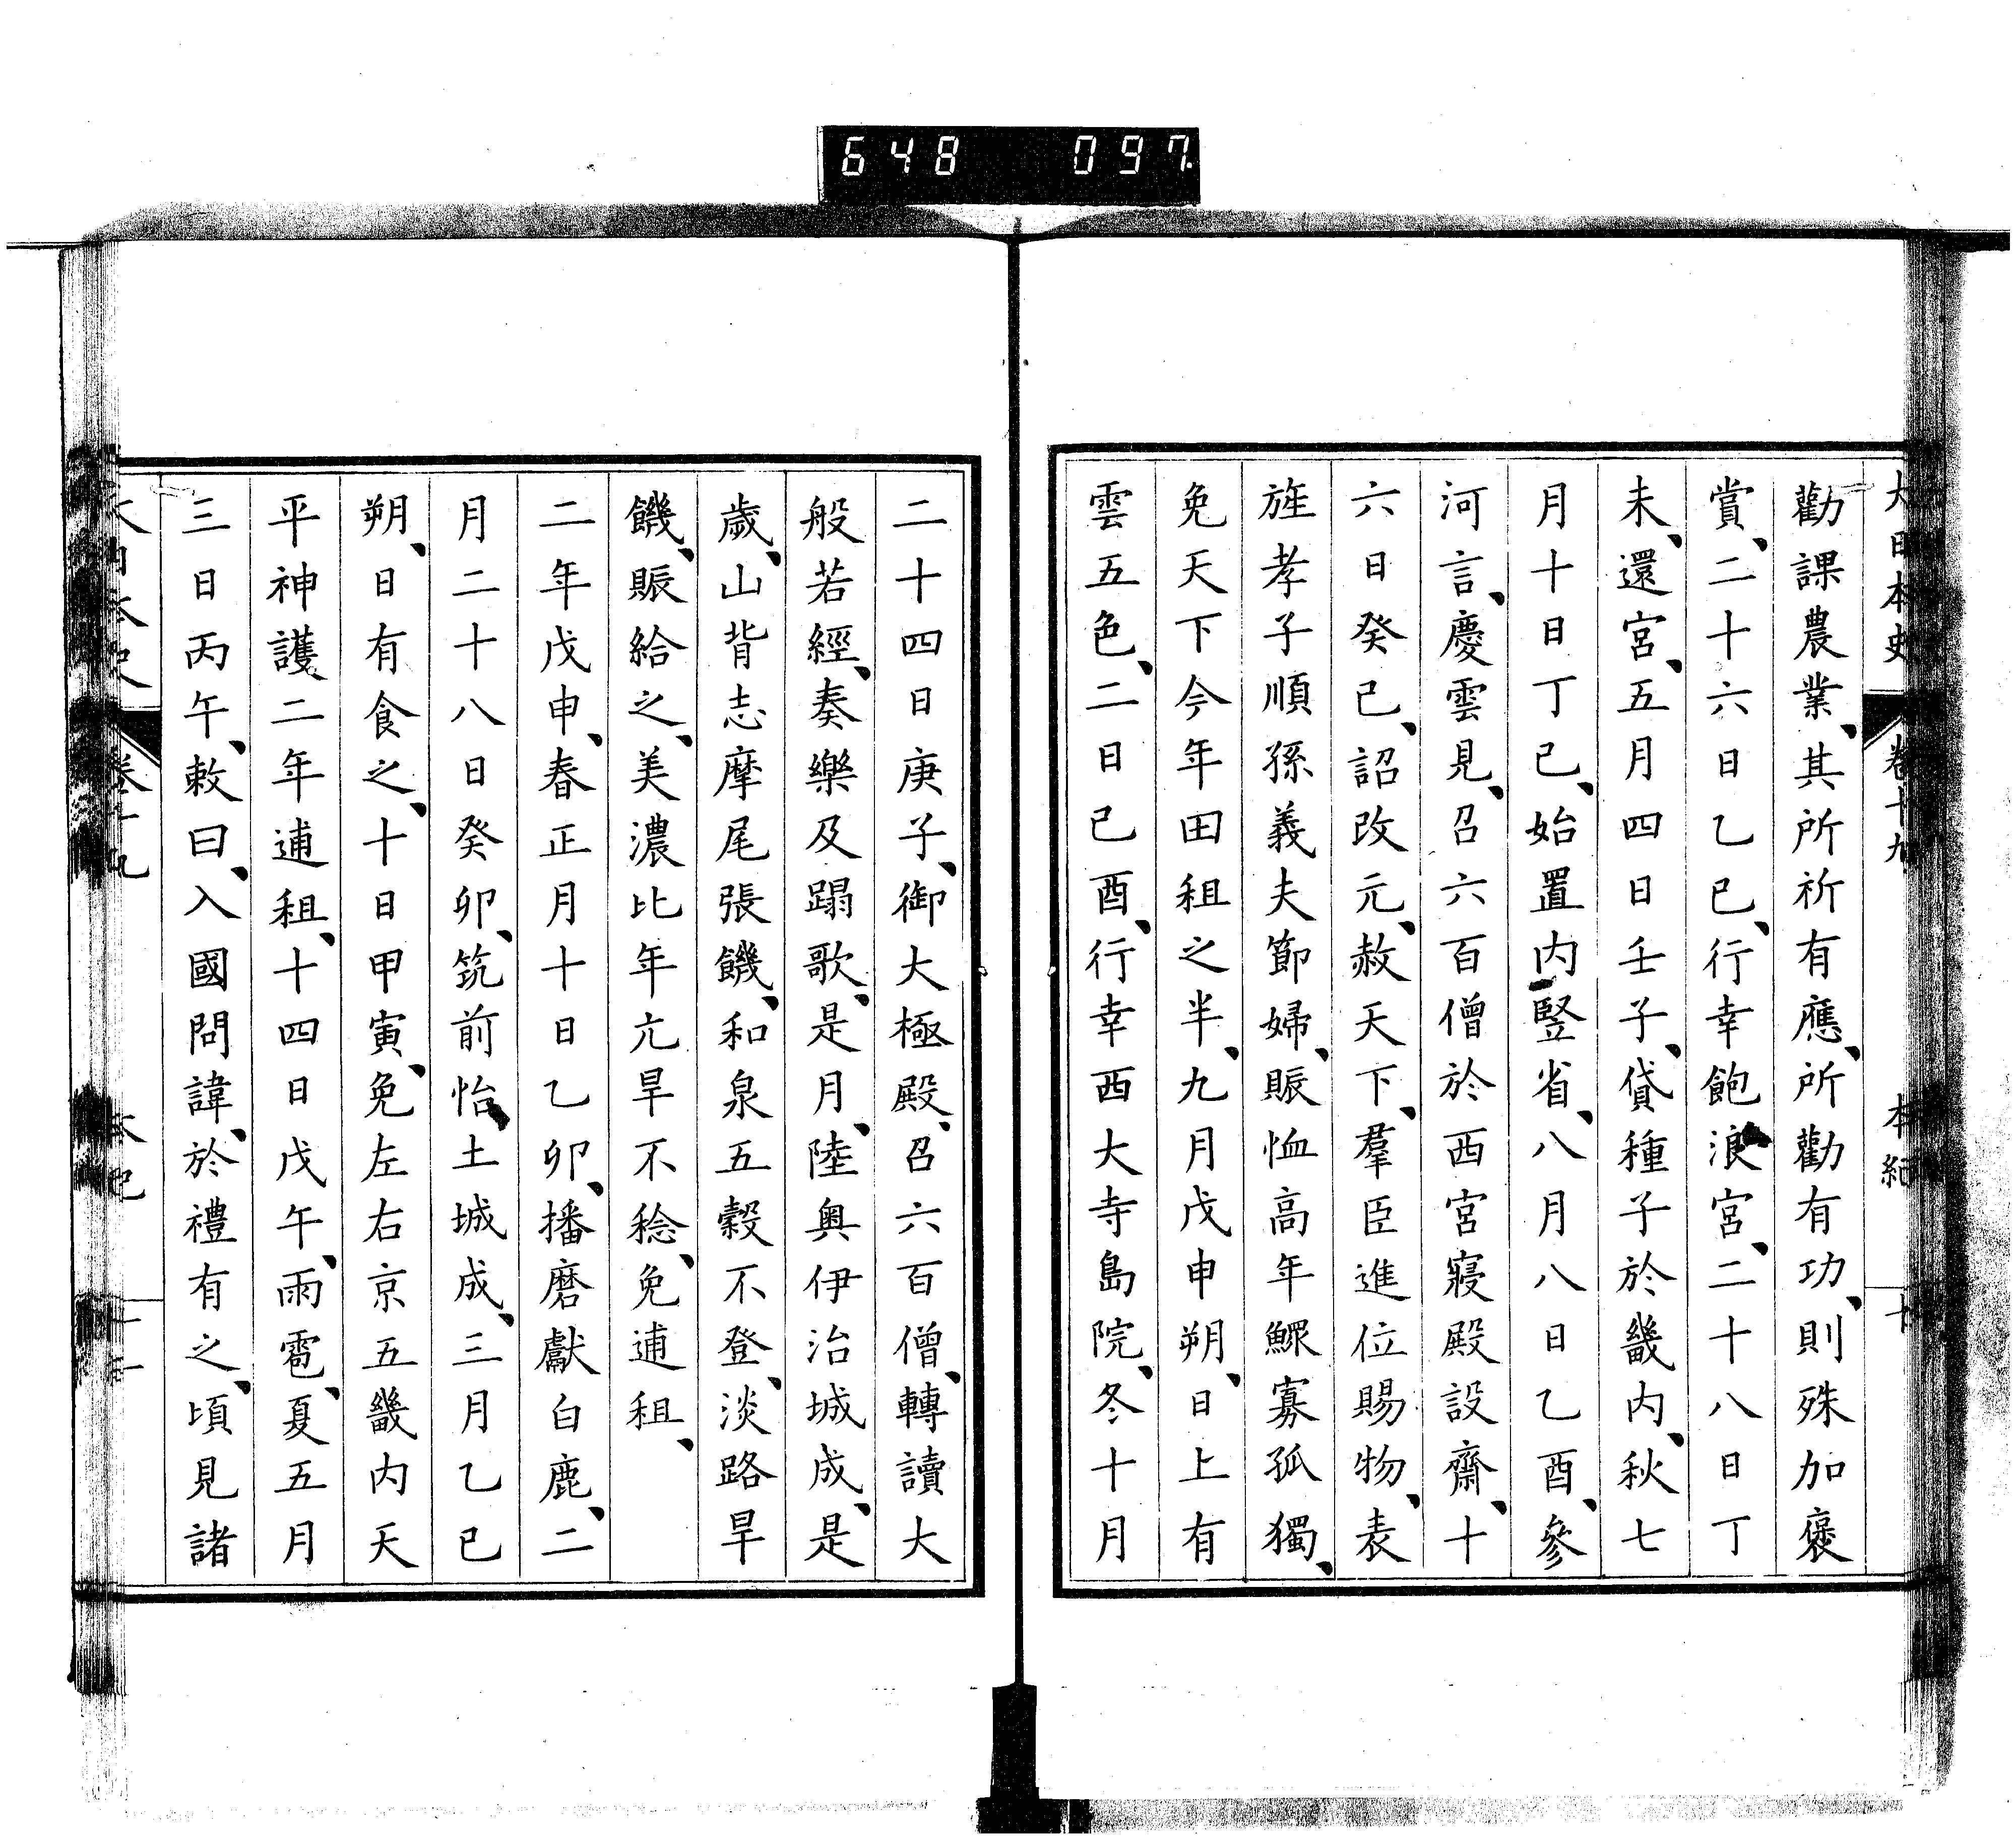 648 097
大日本史 卷十九 本紀 十
勸課農業、其所祈有應、所勸有功、則殊加褒
賞、二十六日乙巳、行幸飽浪宮、二十八日丁
未、還宮、五月四日壬子、貸種子於畿内、秋七
月十日丁巳、始置内豎省、八月八日乙酉、參
河言、慶雲見、召六百僧於西宮寢殿設齋、十
六日癸巳、詔改元、赦天下、羣臣進位賜物、表
旌孝子順孫義夫節婦、賑恤高年鰥寡孤獨、
免天下今年田租之半、九月戊申朔、日上有
雲五色、二日己酉、行幸西大寺島院、冬十月
二十四日庚子、御大極殿、召六百僧、轉讀大
般若經、奏樂及蹋歌、是月、陸奧伊治城成、是
歲、山背志摩尾張饑、和泉五穀不登、淡路旱
饑、賑給之、美濃比年亢旱不稔、免逋租、
二年戊申、春正月十日乙卯、播磨獻白鹿、二
月二十八日癸卯、筑前怡土城成、三月乙巳
朔、日有食之、十日甲寅、免左右京五畿内天
平神護二年逋租、十四日戊午、雨雹、夏五月
三日丙午、敕曰、入國問諱、於禮有之、頃見諸